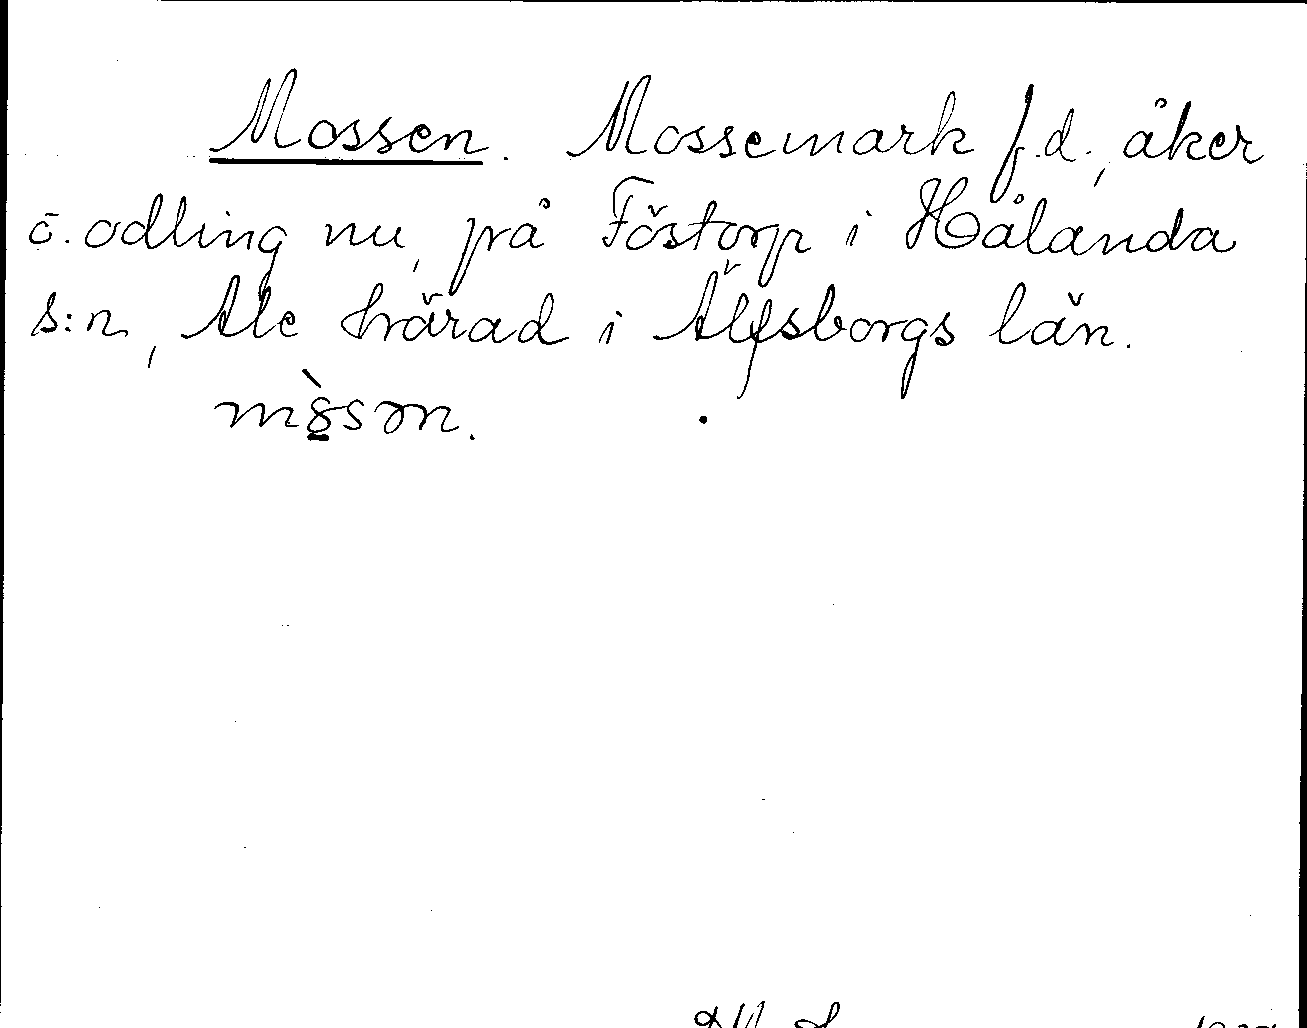 Mossen. Mossemark f.d., åker
o. odling nu, på Föstorp i Hålanda
s:n, Ale härad i Älfsborgs län.
mòsən.